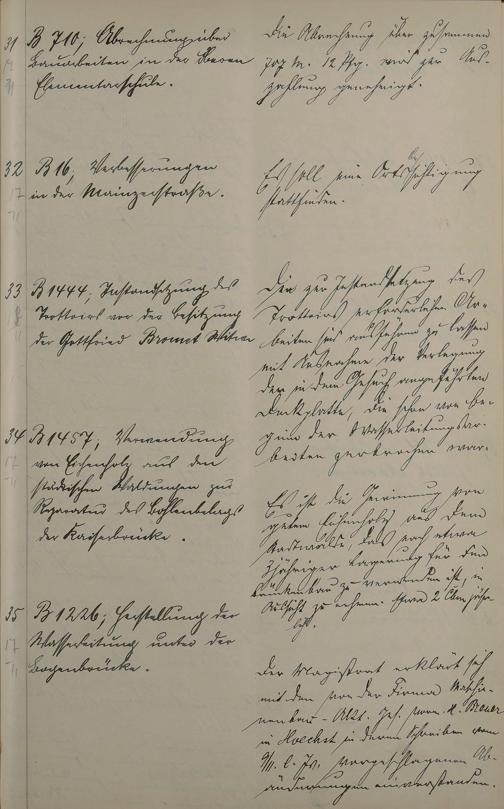 31 B 710; Abrechnung über
Bauarbeiten in der oberen
Elementarschule.
Die Abrechnung über zusammen
M. 12 Pfg. wird zur Aus-
zahlung genehmigt.
32 B 16; Verbesserungen
in der Mainzerstraße.
Es soll eine Ortsbesichtigung
stattfinden.
33 B 1444; Instandsetzung des
Trottoirs vor der Besitzung
der Gottfried Witwe
Die zur Instandsetzung des
Trottoirs erforderlichen Ar-
beiten sind ausführen zu lassen
mit Ausnahme der Verlegung
der in dem Gesuch angeführten
Deckplatte, die schon vor Be-
ginn der Wasserleitungsar-
beiten zerbrochen war.
34 B 1457; Verwendung
von Eichenholz aus den
städtischen Waldungen zur
Reparatur des Bohlenbelags
der Kaiserbrücke.
Es ist die Gewinnung von
gutem Eichenholz aus dem
Stadtwalde, das nach etwa
3jähriger Lagerung für den
Brückenbau zu verwenden ist, in
Aussicht zu nehmen. Etwa 2
35 B 1226; Herstellung der
Wasserleitung unter der
Bogenbrücke.
Der Magistrat erklärt sich
mit den von der Firma Maschi-
nenbau-Akt. Ges. vorm. Breuer
in Hoechst in deren Schreiben vom
9/11. l. Js. vorgeschlagenen Ab-
änderungen einverstanden.